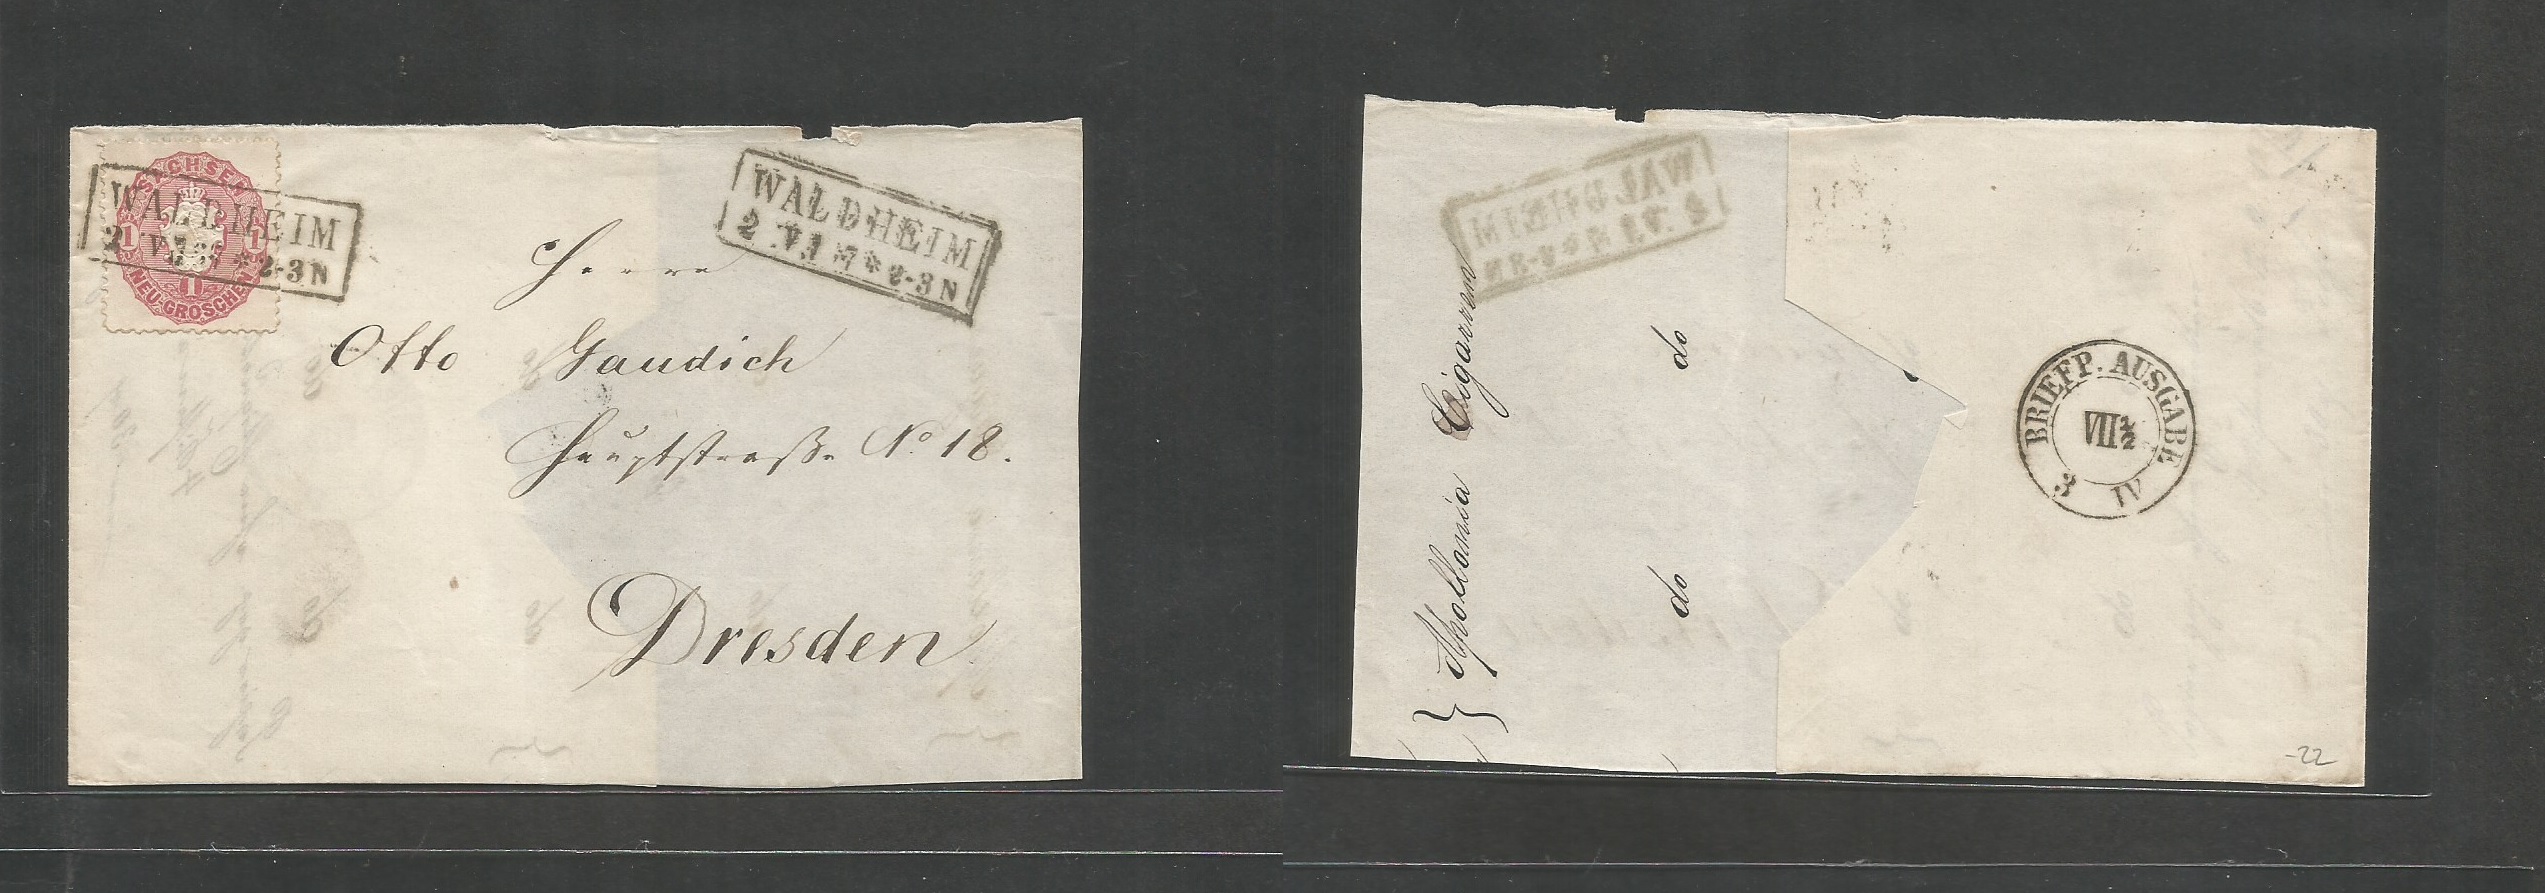 SACHSEN
1 1
1
NEU-GROSCHEN
WALDHEIM
2-3 N
WALDHEIM
2 .VI 67 * 2-3 N
Herrn
Otto Gaudich
Hauptstraße No 18.
Dresden
Apollonia Cigarren
do do
BRIEFP. AUSGABE
VII ½
3 IV
-22